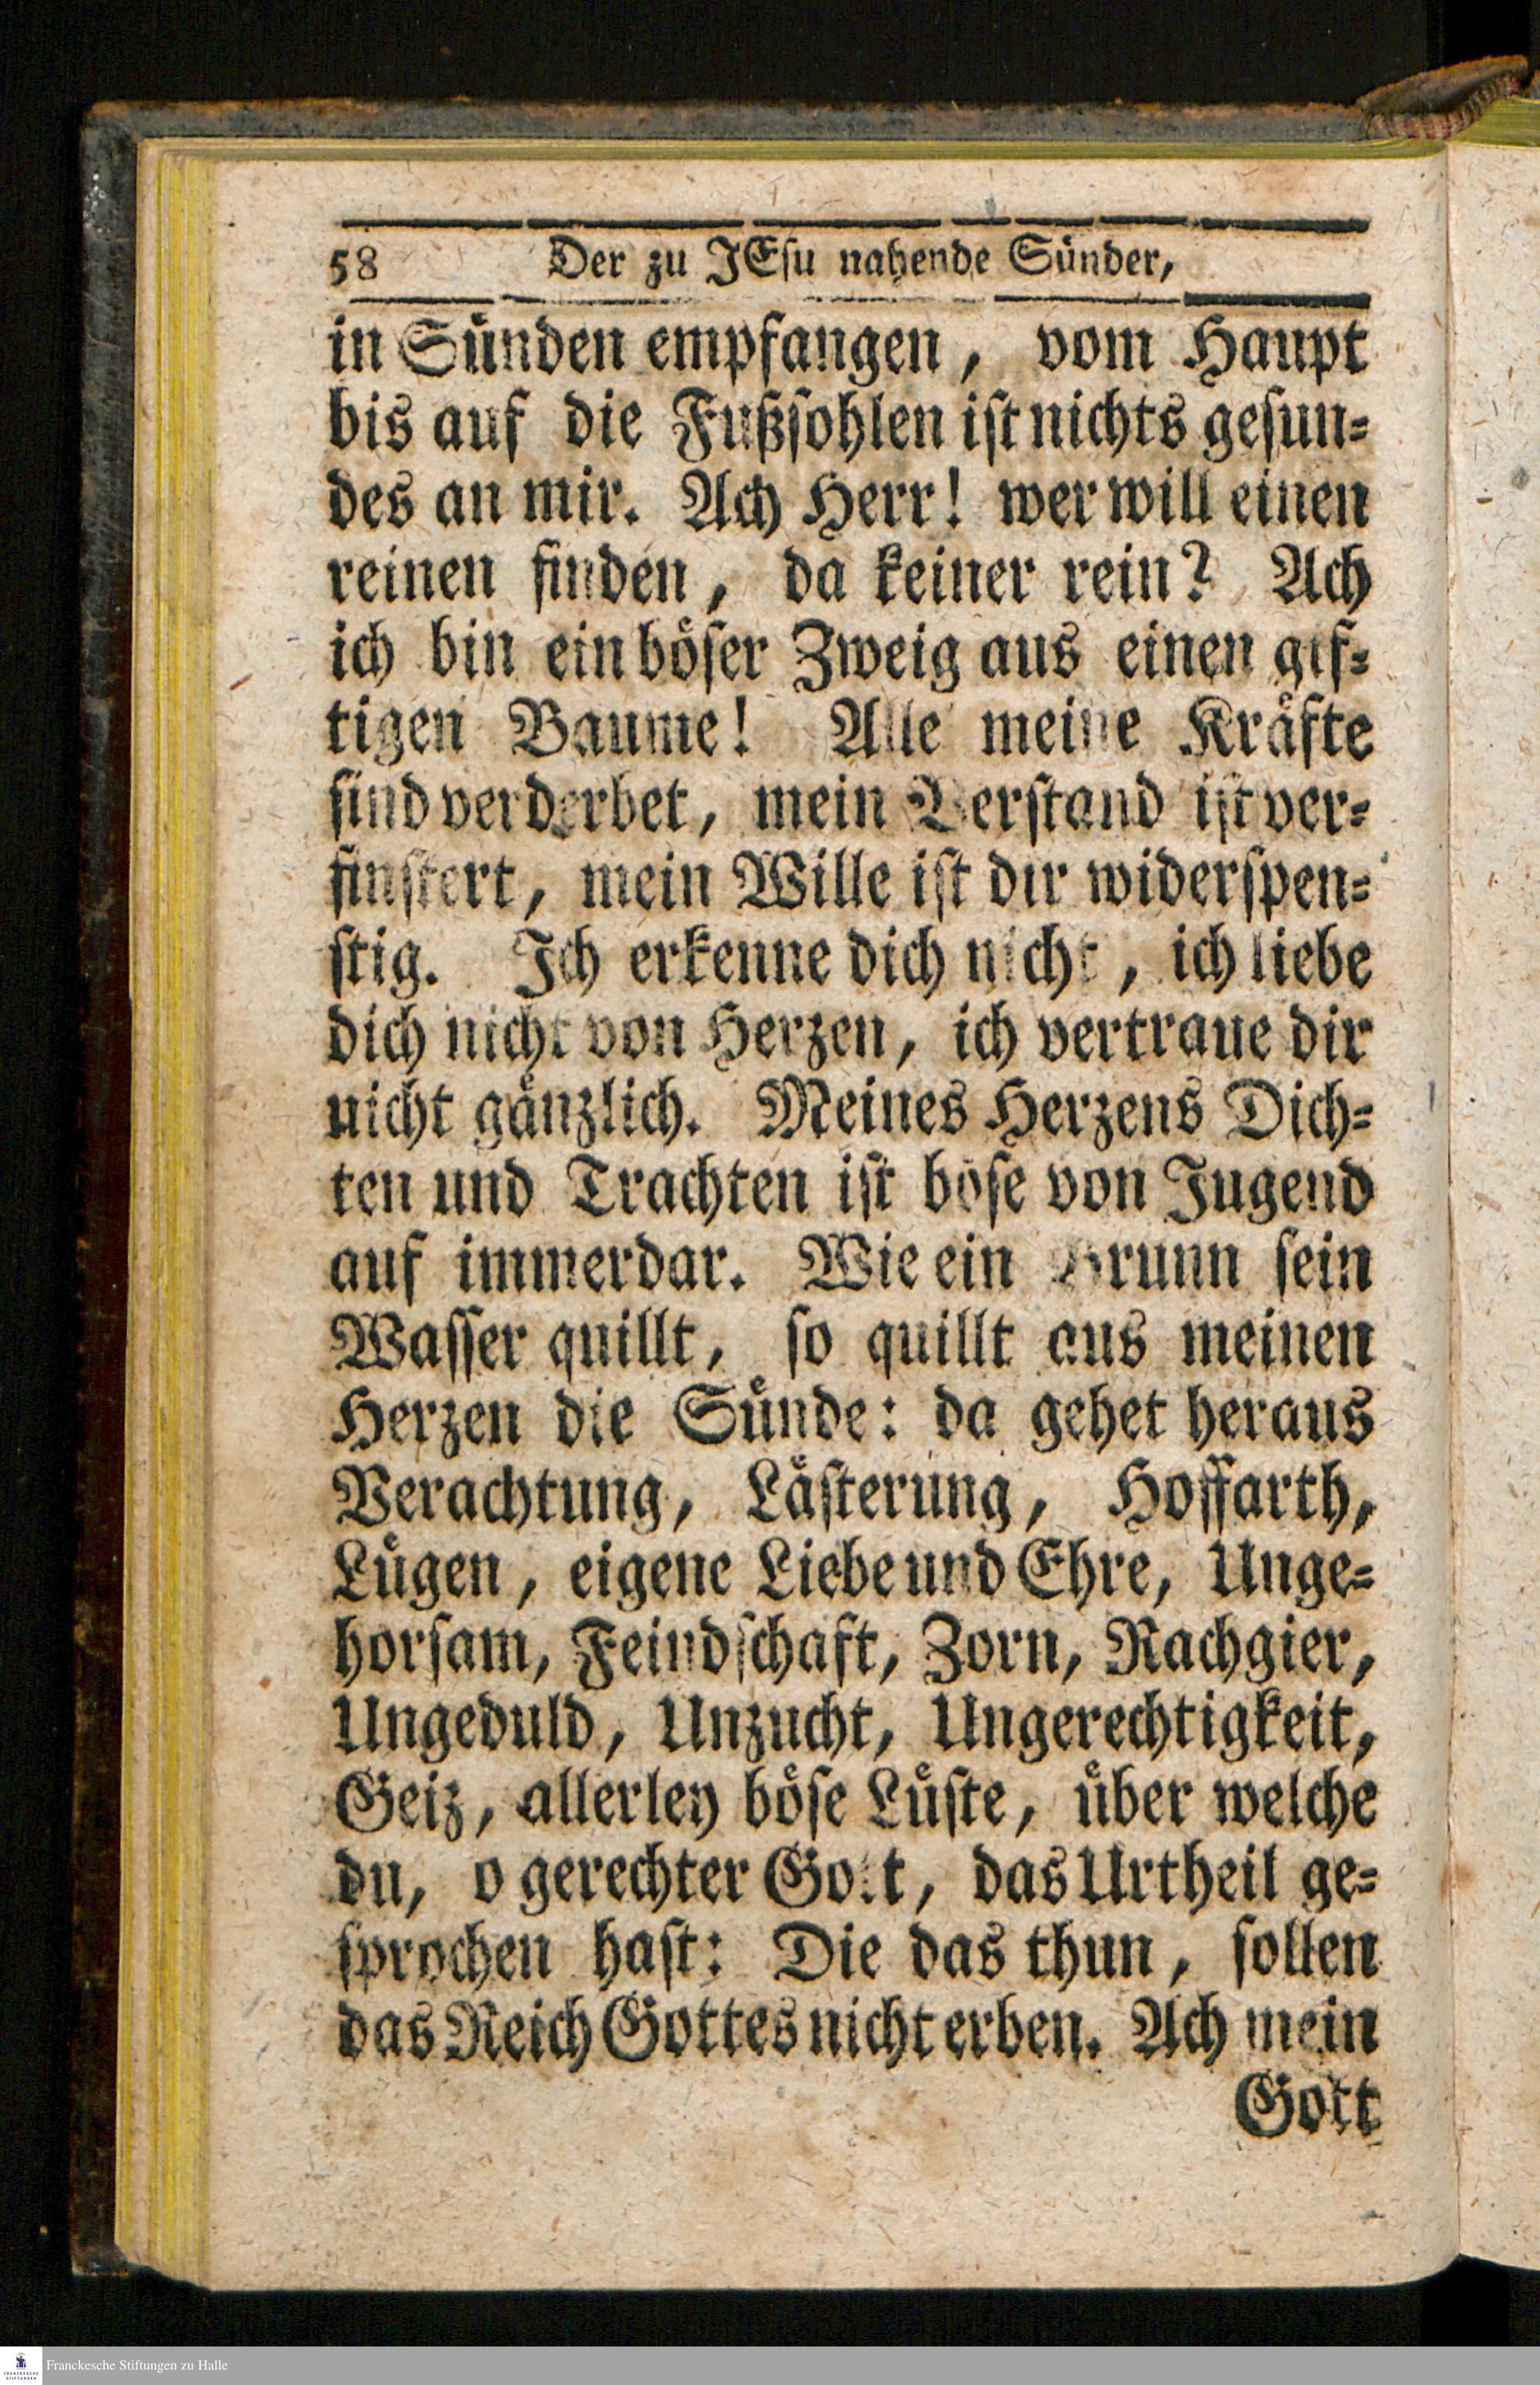 58 Der zu JEsu nahende Sünder,
in Sünden empfangen, vom Haupt
bis auf die Fußsohlen ist nichts gesun-
des an mir. Ach Herr! wer will einen
reinen finden, da keiner rein? Ach
ich bin ein böser Zweig aus einen gif-
tigen Baume! Alle meine Kräfte
sind verderbet, mein Verstand ist ver-
finstert, mein Wille ist dir widerspen-
stig. Ich erkenne dich nicht, ich liebe
dich nicht von Herzen, ich vertraue dir
nicht gänzlich. Meines Herzens Dich-
ten und Trachten ist böse von Jugend
auf immerdar. Wie ein Brunn sein
Wasser quillt, so quillt aus meinen
Herzen die Sünde: da gehet heraus
Verachtung, Lästerung, Hoffarth,
Lügen, eigene Liebe und Ehre, Unge-
horsam, Feindschaft, Zorn, Rachgier,
Ungeduld, Unzucht, Ungerechtigkeit,
Geiz, allerley böse Lüste, über welche
du, o gerechter Gott, das Urtheil ge-
sprochen hast: Die das thun, sollen
das Reich Gottes nicht erben. Ach mein
Gott
FRANCKESCHE STIFTUNGEN
Franckesche Stiftungen zu Halle